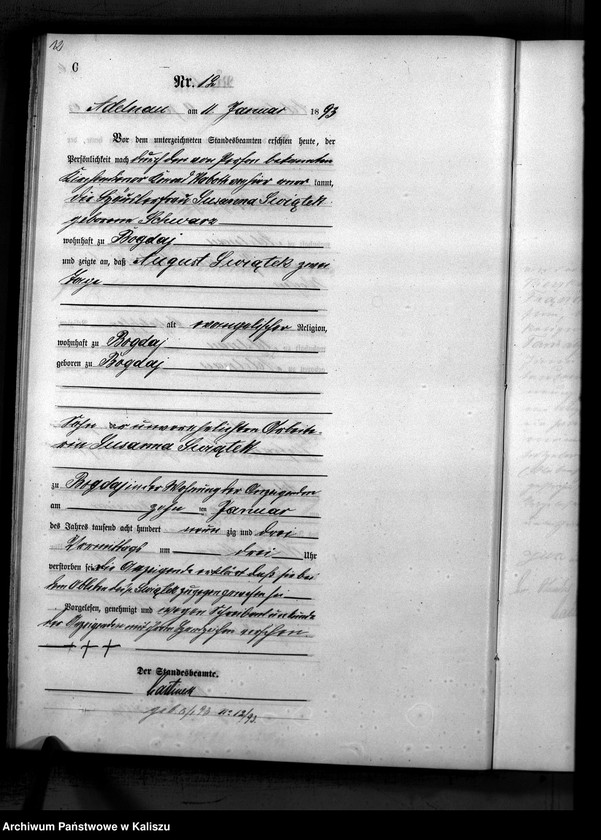 12
C
Nr. 12
Adelnau am 11 Januar 1893
Vor dem unterzeichneten Standesbeamten erschien heute, der
Persönlichkeit nach durch den von Person bekannten
kannt,
die Häuslerfrau Susanna Swiątek
geborene Schwarz
wohnhaft zu Bogdaj
und zeigte an, daß August Swiątek zwei
Tage
alt evangelischer Religion,
wohnhaft zu Bogdaj
geboren zu Bogdaj
Sohn der unverehelichten Arbeite-
rin Susanna Swiątek
zu Bogdaj in der Wohnung der Anzeigenden
am zehn ten Januar
des Jahres tausend acht hundert neun zig und drei
Vormittags um drei Uhr
verstorben sei die Anzeigende erklärt daß sie bei
dem Ableben des Swiątek zugegen gewesen sei
Vorgelesen, genehmigt und wegen Schreibensunkunde
der Anzeigenden mit ihren Handzeichen versehen
+++
Der Standesbeamte.
geb. 9/1 93 Nr 12/93.
Archiwum Państwowe w Kaliszu